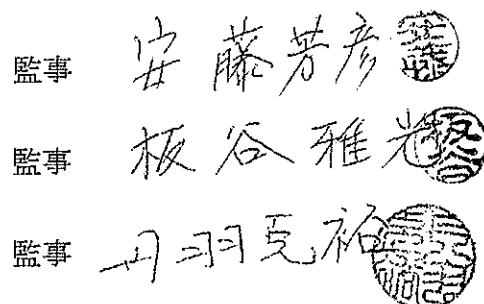 監事 安藤芳彦
監事 板谷雅光
監事 丹羽克裕